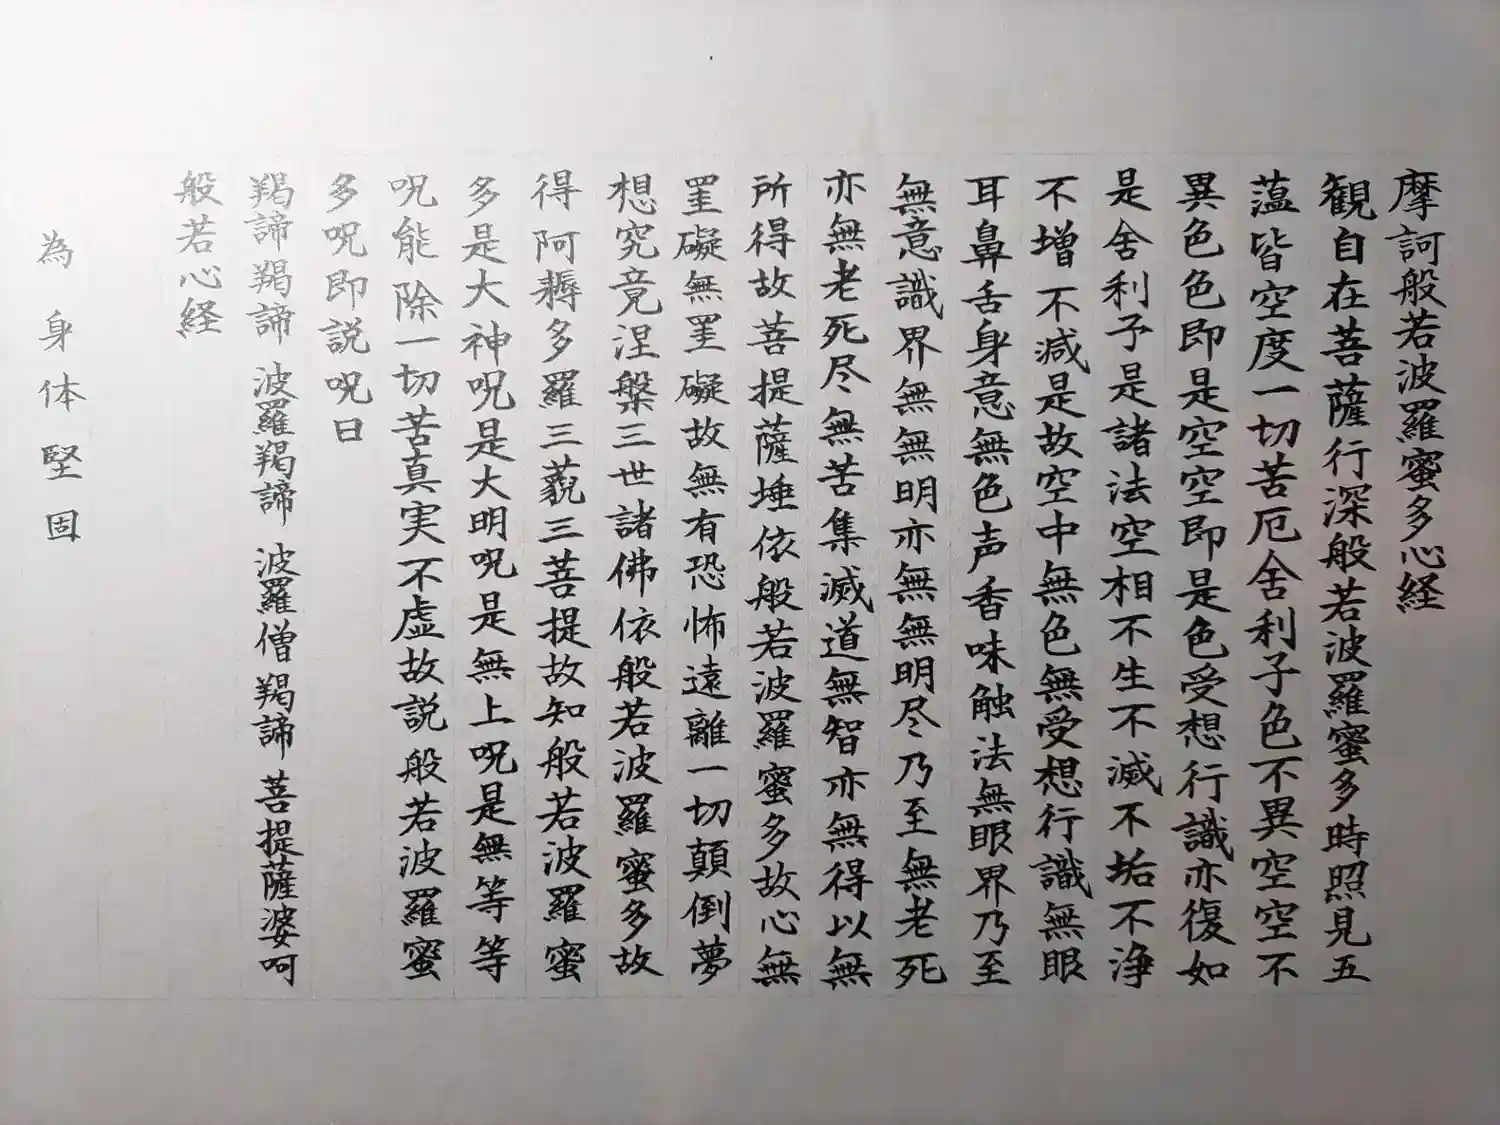 摩訶般若波羅蜜多心経
観自在菩薩行深般若波羅蜜多時照見五
薀皆空度一切苦厄舎利子色不異空空不
異色色即是空空即是色受想行識亦復如
是舎利子是諸法空相不生不滅不垢不浄
不増不減是故空中無色無受想行識無眼
耳鼻舌身意無色声香味触法無眼界乃至
無意識界無無明亦無無明尽乃至無老死
亦無老死尽無苦集滅道無智亦無得以無
所得故菩提薩埵依般若波羅蜜多故心無
罣礙無罣礙故無有恐怖遠離一切顛倒夢
想究竟涅槃三世諸佛依般若波羅蜜多故
得阿耨多羅三藐三菩提故知般若波羅蜜
多是大神呪是大明呪是無上呪是無等等
呪能除一切苦真実不虚故説般若波羅蜜
多呪即説呪曰
羯諦羯諦波羅羯諦波羅僧羯諦菩提薩婆呵
般若心経
為身体堅固